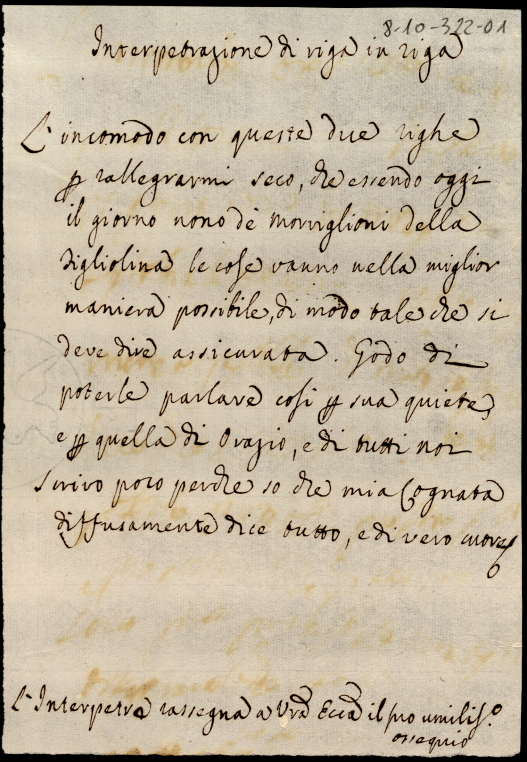 8-10-322-01
Interpetrazione di riga in riga
L'incomodo con queste due righe
ꝑ rallegrarmi seco, che essendo oggi
il giorno nono de morviglioni della
figliolina le cose vanno nella miglior
maniera possibile, di modo tale che si
deve dire assicurata. Godo di
poterle parlare così ꝑ sua quiete,
e ꝑ quella di Orazio, e di tutti noi
scrivo poco perche so che mia Cognata
diffusamente dice tutto, e di vero cuore
L'Interpetre rassegna a Vrã Eccã il suo umilis.o
ossequio